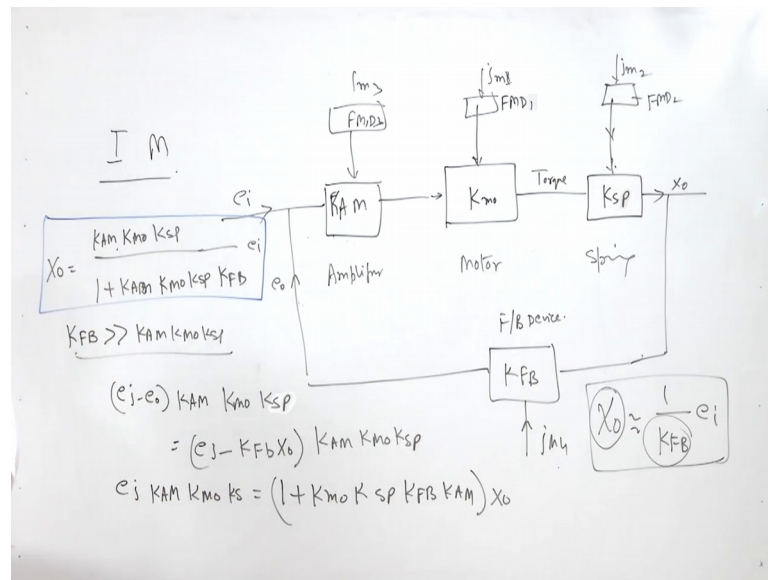 I M
ei
X₀ = KAM KMO KSP / 1 + KAM KMO KSP KFB ei
KFB >> KAM KMO KSP
(ei-e₀) KAM KMO KSP
= (ei - KFB X₀) KAM KMO KSP
ei KAM KMO KS = (1 + KMO K SP KFB KAM) X₀
Im3
FMD3
KAM
Amplifier
e₀
im1
FMD1
Kmo
Motor
Torque
im2
FMD2
KSP
Spring
X₀
F/B Device.
KFB
im4
X₀ ≈ 1 / KFB ei